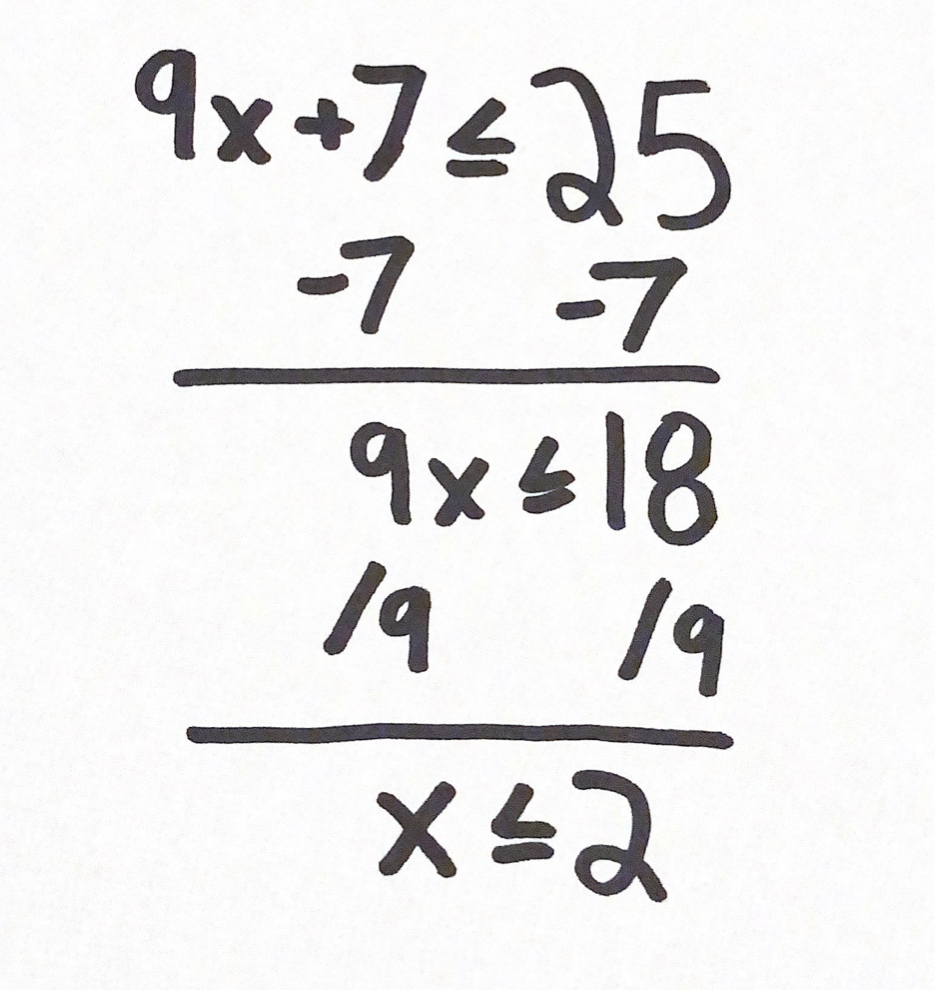 9x+7≤25
-7 -7
9x≤18
/9 /9
x≤2